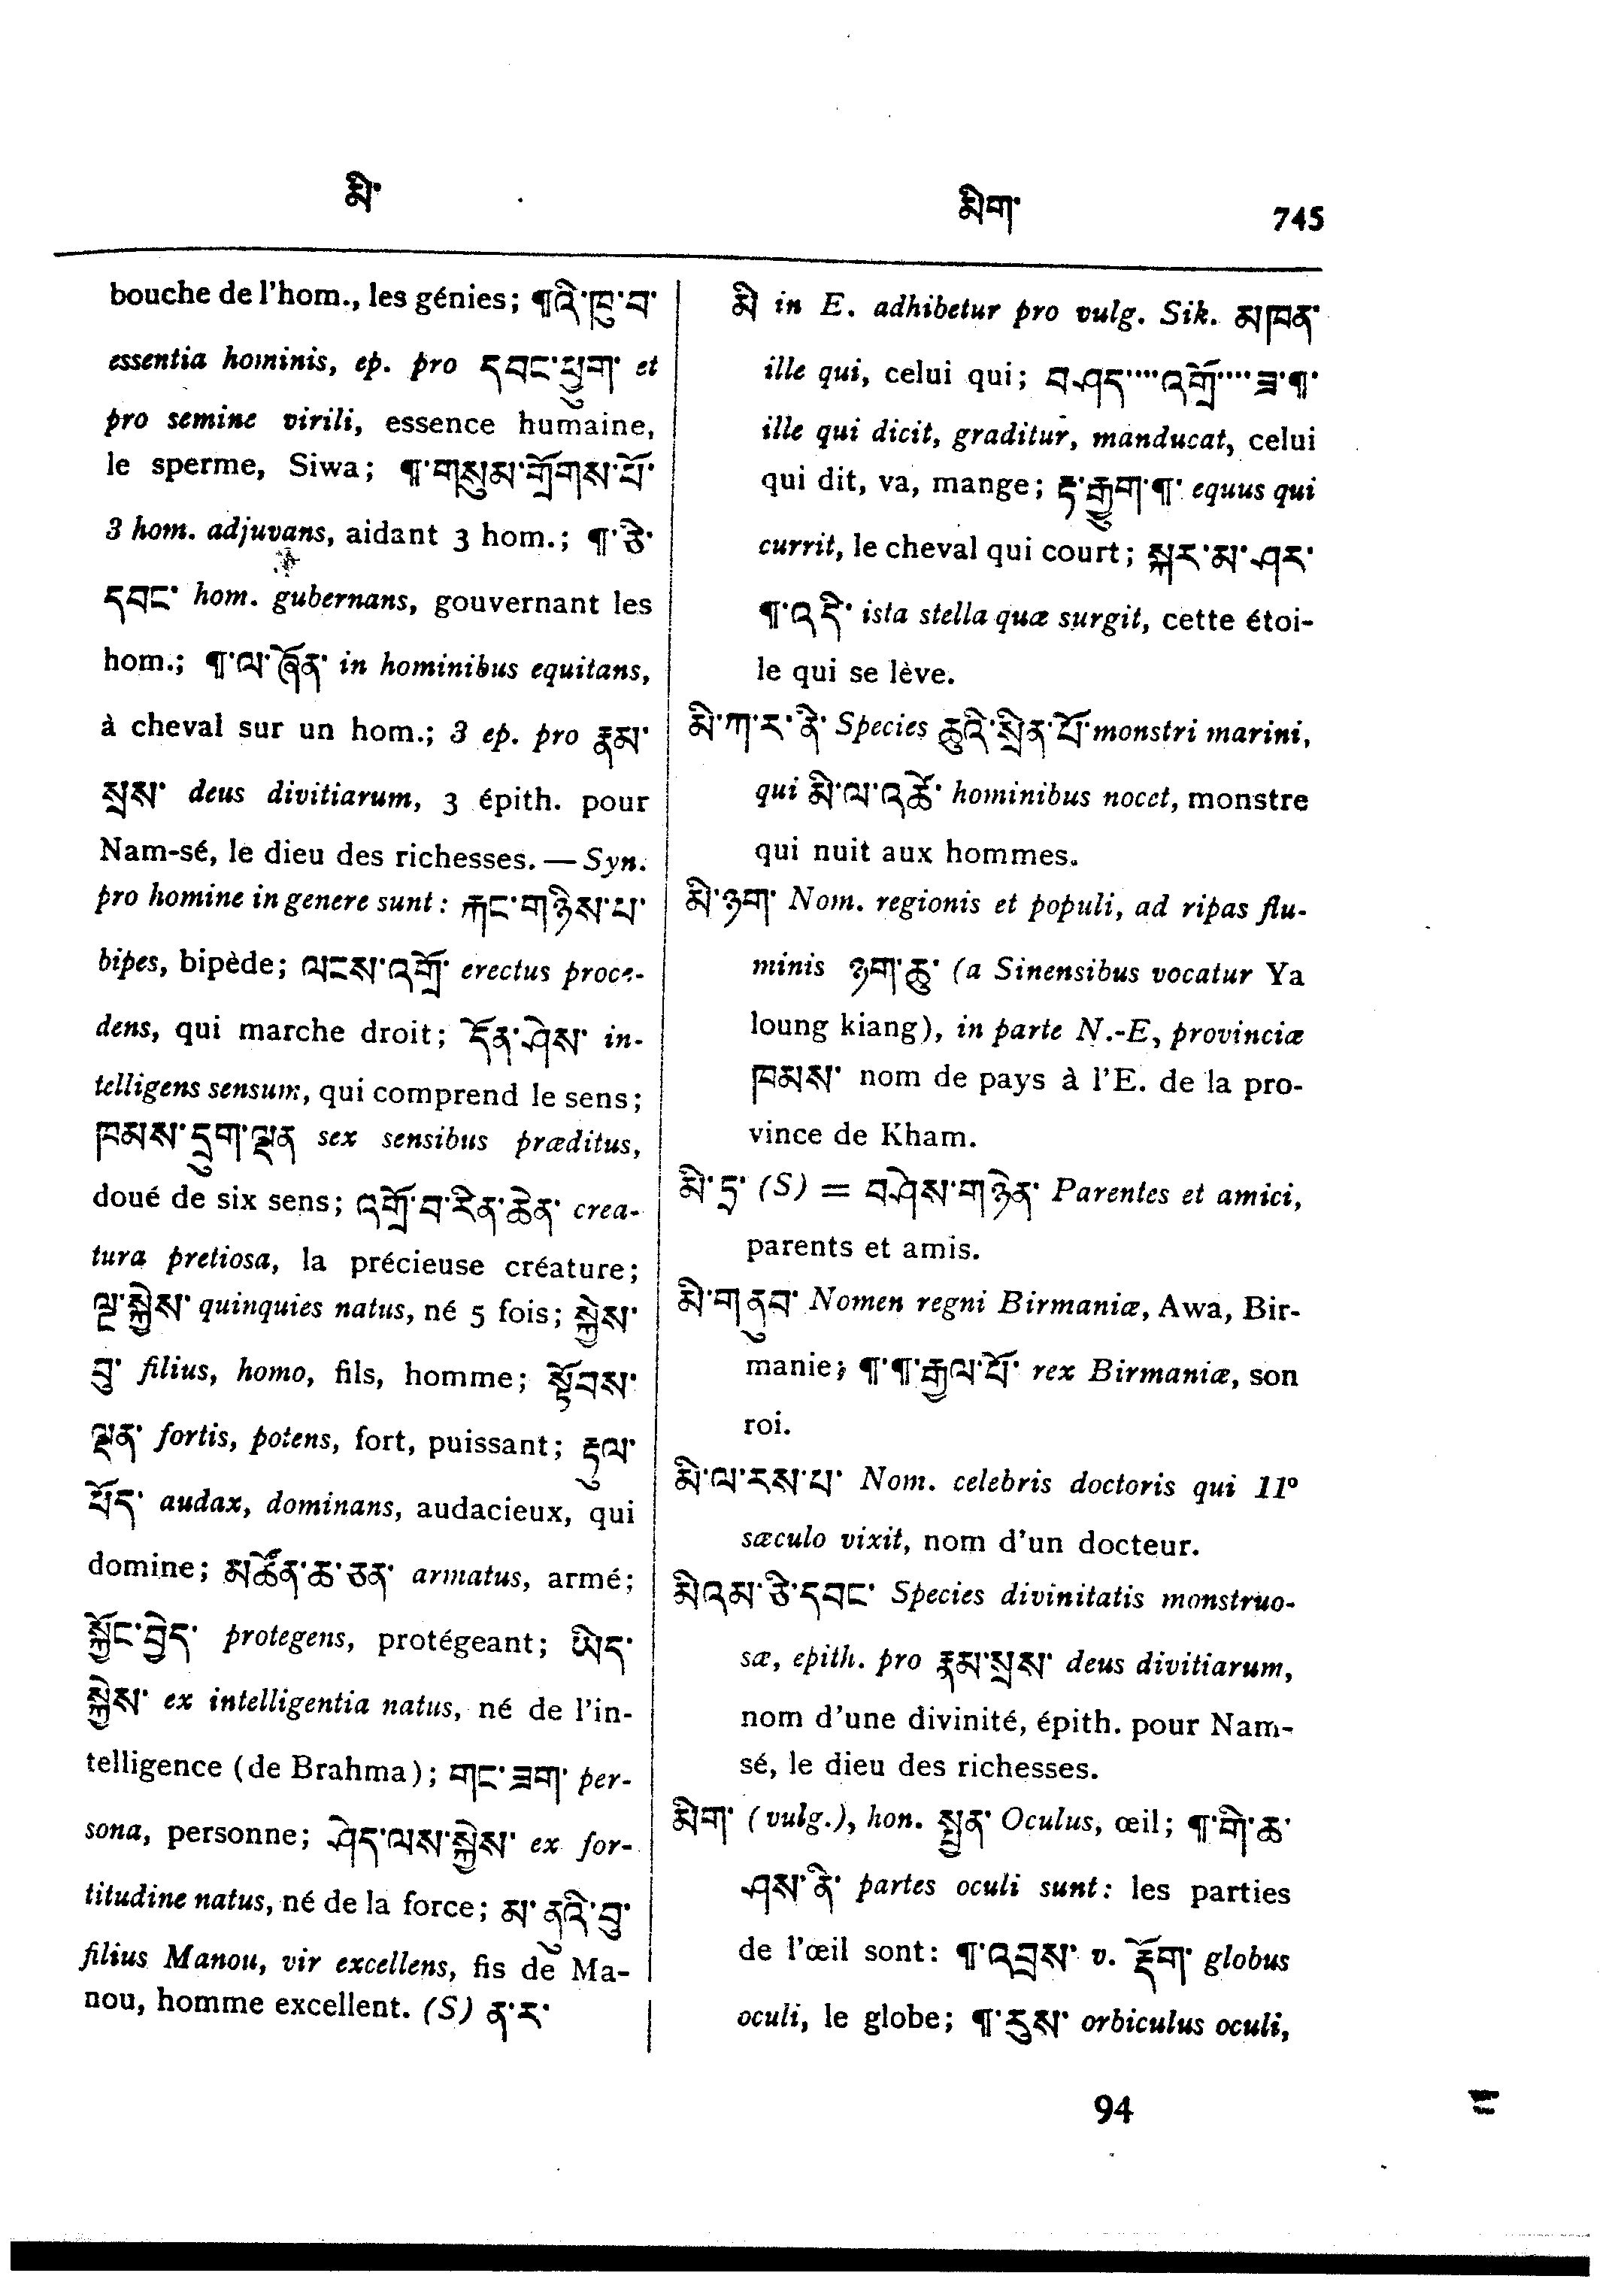 མི་
མིག་ 745
bouche de l'hom., les génies; ¶འི་ཁུ་བ་
essentia hominis, ep. pro དབང་ཕྱུག་ et
pro semine virili, essence humaine,
le sperme, Siwa; ¶་གསུམ་གྲོགས་པོ་
3 hom. adjuvans, aidant 3 hom.; ¶་ཅེ་
དབང་ hom. gubernans, gouvernant les
hom.; ¶་ལ་ཞོན་ in hominibus equitans,
à cheval sur un hom.; 3 ep. pro རྣམ་
སྲས་ deus divitiarum, 3 épith. pour
Nam-sé, le dieu des richesses. — Syn.
pro homine in genere sunt: རྐང་གཉིས་པ་
bipes, bipède; ལངས་འགྲོ་ erectus proce-
dens, qui marche droit; དོན་ཤེས་ in-
telligens sensum, qui comprend le sens;
ཁམས་དྲུག་ལྡན sex sensibus præditus,
doué de six sens; འགྲོ་བ་རིན་ཆེན་ crea-
tura pretiosa, la précieuse créature;
ལྔ་སྐྱེས་ quinquies natus, né 5 fois; སྐྱེས་
བུ་ filius, homo, fils, homme; སྟོབས་
ལྡན་ fortis, potens, fort, puissant; རྟུལ་
ཕོད་ audax, dominans, audacieux, qui
domine; མཚོན་ཆ་ཅན་ armatus, armé;
སྐྱོང་བྱེད་ protegens, protégeant; ཡིད་
སྐྱེས་ ex intelligentia natus, né de l'in-
telligence (de Brahma); གང་ཟག་ per-
sona, personne; ཤེད་ལས་སྐྱེས་ ex for-
titudine natus, né de la force; མ་ནུའི་བུ་
filius Manou, vir excellens, fis de Ma-
nou, homme excellent. (S) ན་ར་
མི in E. adhibetur pro vulg. Sik. མཁན་
ille qui, celui qui; བཤད་····འགྲོ་····ཟ་¶་
ille qui dicit, graditur, manducat, celui
qui dit, va, mange; རྟ་རྒྱུག་¶་ equus qui
currit, le cheval qui court; སྐར་མ་ཤར་
¶་འདི་ ista stella quæ surgit, cette étoi-
le qui se lève.
མི་ཀ་ར་ནེ་ Species ཆུའི་སྲིན་པོ་ monstri marini,
qui མི་ལ་འཚེ་ hominibus nocet, monstre
qui nuit aux hommes.
མི་ཉག་ Nom. regionis et populi, ad ripas flu-
minis ཉག་ཆུ་ (a Sinensibus vocatur Ya
loung kiang), in parte N.-E, provinciæ
ཁམས་ nom de pays à l'E. de la pro-
vince de Kham.
མི་ཏྲ་ (S) = བཤེས་གཉེན་ Parentes et amici,
parents et amis.
མི་གནུབ་ Nomen regni Birmaniæ, Awa, Bir-
manie; ¶་¶་རྒྱལ་པོ་ rex Birmaniæ, son
roi.
མི་ལ་རས་པ་ Nom. celebris doctoris qui 11º
sæculo vixit, nom d'un docteur.
མིའམ་ཅེ་དབང་ Species divinitatis monstruo-
sæ, epith. pro རྣམ་སྲས་ deus divitiarum,
nom d'une divinité, épith. pour Nam-
sé, le dieu des richesses.
མིག་ (vulg.), hon. སྤྱན་ Oculus, œil; ¶་གི་ཆ་
ཤས་ནི་ partes oculi sunt: les parties
de l'œil sont: ¶་འབྲས་ v. རྡོག་ globus
oculi, le globe; ¶་རུས་ orbiculus oculi,
94